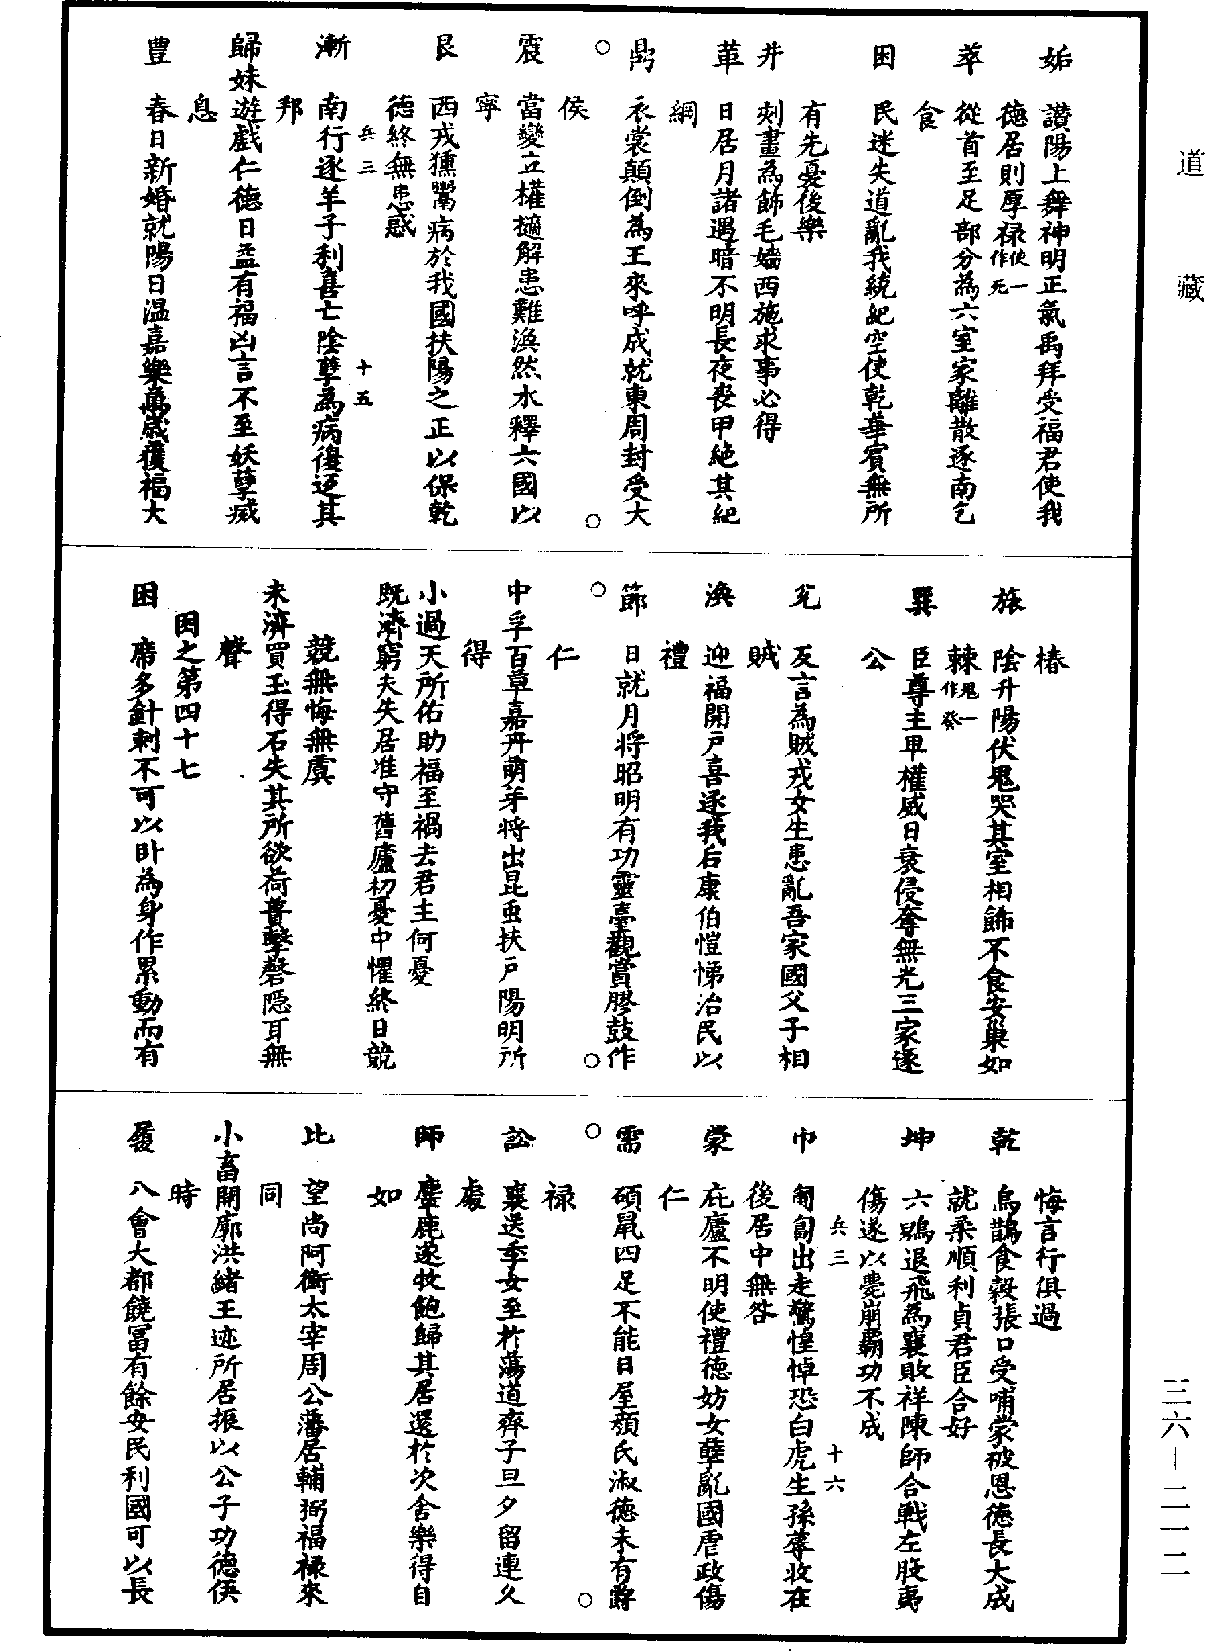 道藏
姤　讚陽上舞神明正氣禹拜受福君使我
德居則厚祿使一作死
萃　從首至足部分為六室家離散逐南乞
食
困　民迷失道亂我統紀空使乾華賓無所
有先憂後樂
井　刻畫為飾毛嬙西施求事必得
革　日居月諸遇暗不明長夜喪甲絕其紀
綱
鼎　衣裳顛倒為王來呼成就東周封受大
侯
震　當變立權擿解患難渙然水釋六國以
寧
艮　西戎獯鬻病於我國扶陽之正以保乾
德終無患惑
兵三　十五
漸　南行逐羊子利喜亡陰孽為病復迓其
邦
歸妹遊戲仁德日益有福凶言不至妖孽威
息
豐　春日新婚就陽日溫嘉樂萬歲獲福大
椿
旅　陰升陽伏鬼哭其室相飾不食安巢如
棘鬼一作癸
巽　臣尊主卑權威日衰侵奪無光三家逐
公
兌　反言為賊戎女生患亂吾家國父子相
賊
渙　迎福開戶喜逐我后康伯愷悌治民以
禮
節　日就月將昭明有功靈臺觀賞膠鼓作
仁
中孚百草嘉卉萌芽將出昆蟲扶戶陽明所
得
小過天所佑助福至禍去君主何憂
既濟窮夫失居准守舊廬初憂中懼終日兢
兢無悔無虞
未濟買玉得石失其所欲荷蕢擊磬隱耳無
聲
困之第四十七
困　席多針刺不可以卧為身作累動而有
悔言行俱過
乾　烏鵲食穀張口受哺蒙被恩德長大成
就柔順利貞君臣合好
坤　六鶂退飛為襄敗祥陳師合戰左股夷
傷遂以薨崩霸功不成
兵三　十六
屯　匍匐出走驚惶悼恐白虎生孫蓐收在
後居中無咎
蒙　庇廬不明使禮德妨女孽亂國虐政傷
仁
需　碩鼠四足不能日屋顏氏淑德未有爵
祿
訟　襄送季女至於蕩道齊子旦夕留連久
處
師　麞鹿逐牧飽歸其居還於次舍樂得自
如
比　望尚阿衡太宰周公藩居輔弼福祿來
同
小畜開廓洪緒王迹所居振以公子功德俟
時
履　八會大都饒富有餘安民利國可以長
三六—二一二